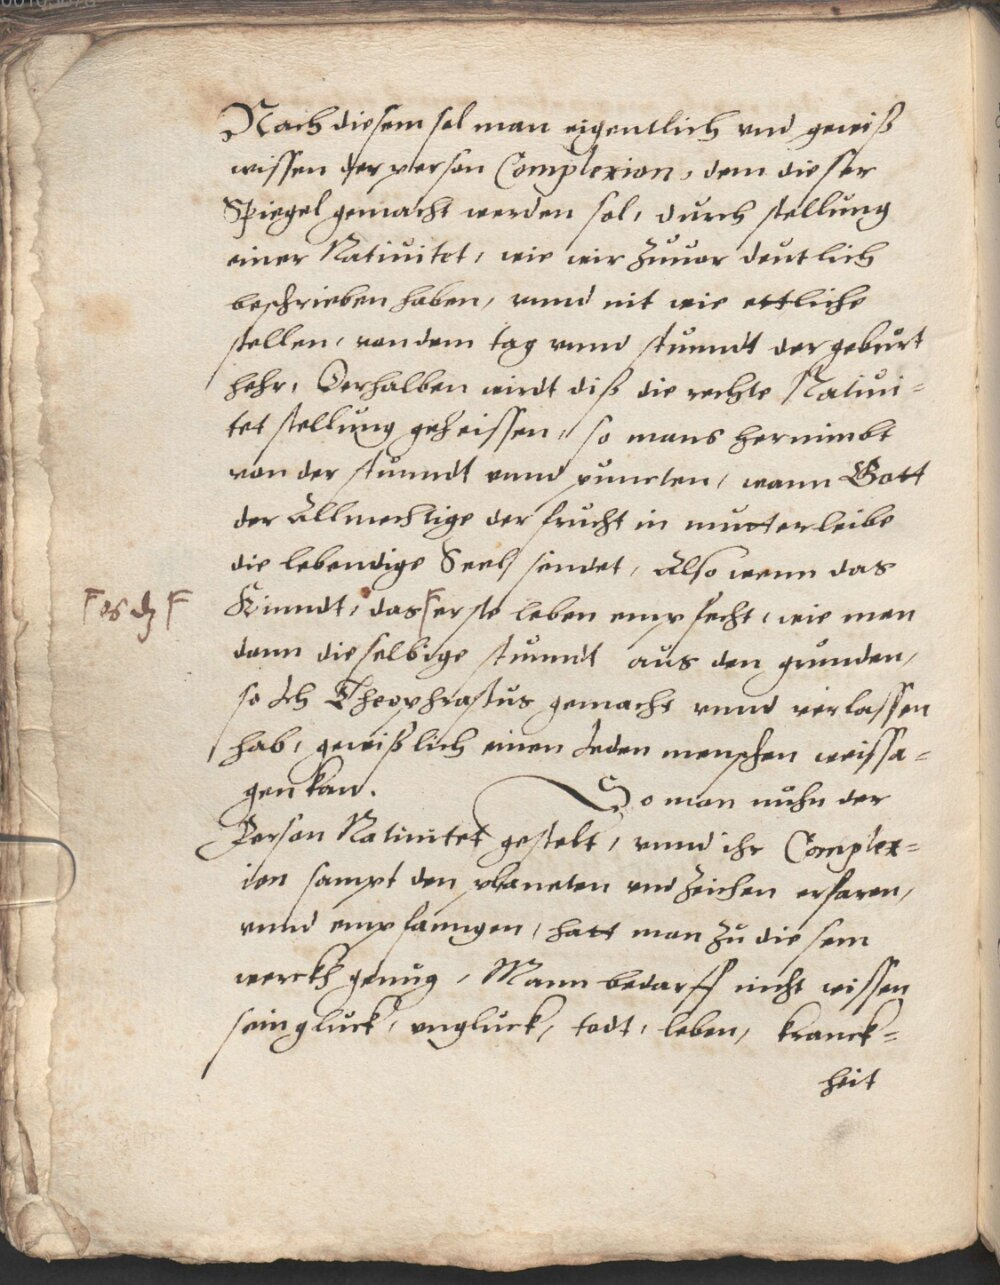 Nach diesem sol man eigentlich vnd gewiß
wissen der person Complexion, dem dieser
Spiegel gemacht werden sol, durch stellung
einer Natiuitet, wie wir zuuor deutlich
beschrieben haben, vnnd nit wie ettliche
stellen, von dem tag vnnd stunndt der geburt
hehr, Derhalben wirdt diß die rechte Natiui=
tet stellung geheissen, so mans hernimbt
von der stunndt vnnd puncten, wann Gott
der Allmechtige der frucht in mutterleibe
die lebendige Seel sendet, Also wenn das
Kinndt, das erste leben empfecht, wie man
dann dieselbige stunndt aus den grunden,
so Ich Theophrastus gemacht vnnd verlassen
hab, gewißlich einen Jeden menschen weissa=
gen kan. So man nuhn der
Person Natiuitet gestelt, vnnd ihr Complex=
ion sampt den planeten vnd zeichen erfaren,
vnnd empfanngen, hatt man zu diesem
werckh genug, Mann bedarff nicht wissen
sein gluck, vngluck, todt, leben, kranck=
heit